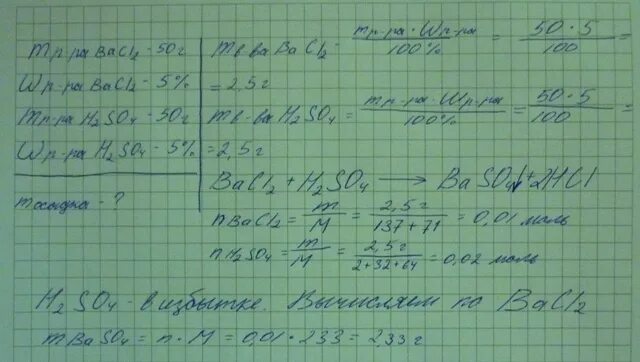 m р-ра BaCl₂ - 50г
W р-ра BaCl₂ - 5%
m р-ра H₂SO₄ - 50г
W р-ра H₂SO₄ - 5%
m осадка - ?
m в-ва BaCl₂ - m р-ра · W р-ра / 100% = 50 · 5 / 100 =
= 2,5г
m в-ва H₂SO₄ = m р-ра · W р-ра / 100% = 50 · 5 / 100 =
= 2,5г
BaCl₂ + H₂SO₄ → BaSO₄↓ + 2HCl
n BaCl₂ = m / M = 2,5г / 137 + 71 = 0,01 моль
n H₂SO₄ = m / M = 2,5г / 2+32+64 = 0,02 моль
H₂SO₄ - в избытке. Вычисляем по BaCl₂
m BaSO₄ = n · M = 0,01 · 233 = 2,33г